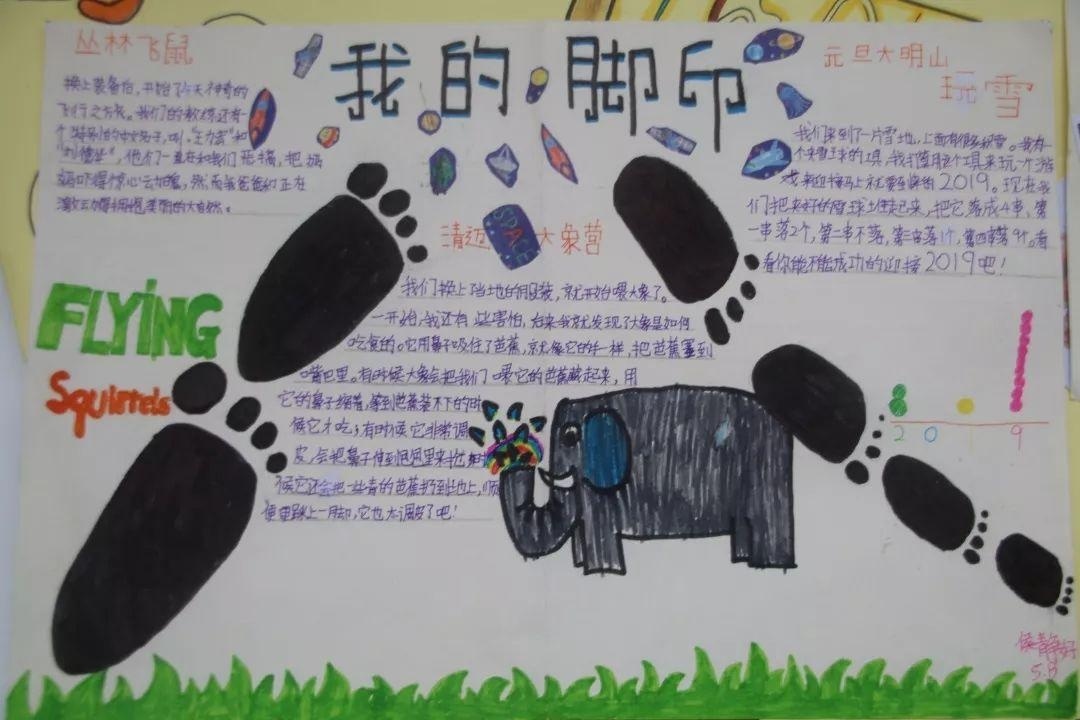 我的脚印
丛林飞鼠
换上装备后,开始了今天神奇的
飞行之方式。我们的教练还有一
个特别的中文名子,叫"王力宏"和
"刘德华",他们一直在和我们
吓得惊心云如魂,然而我爸爸们正在
大自然。
FLYING
Squirrels
SPACE
清迈大象营
我们换上当地的服装,就开始喂大象了。
一开始,我还有些害怕,后来我就发现了大象是如何
吃食的。它用鼻子吸住了芭蕉,就像它的手一样,把芭蕉塞到
嘴巴里。有时候大象会把我们喂它的芭蕉藏起来,用
它的鼻子缩着,等到芭蕉装不下的时
候它才吃;有时候它非常调
皮,会把鼻子伸到包包里来
候它还会把一些青的芭蕉扔到地上,顺
便再踩上一脚,它也太调皮了吧!
元旦大明山
玩雪
我们来到了一片雪地,上面有很多积雪。我有一
个夹雪球的工具,我打算用这个工具来玩一个游
戏来迎接马上就要到来的2019。现在我
们把夹好的雪球堆起来,把它落成4串,第
一串落2个,第二串不落,第三串落1个,第四串落9个。看
看你能不能成功的迎接2019吧!
2 0 1 9
侯静好
5.8